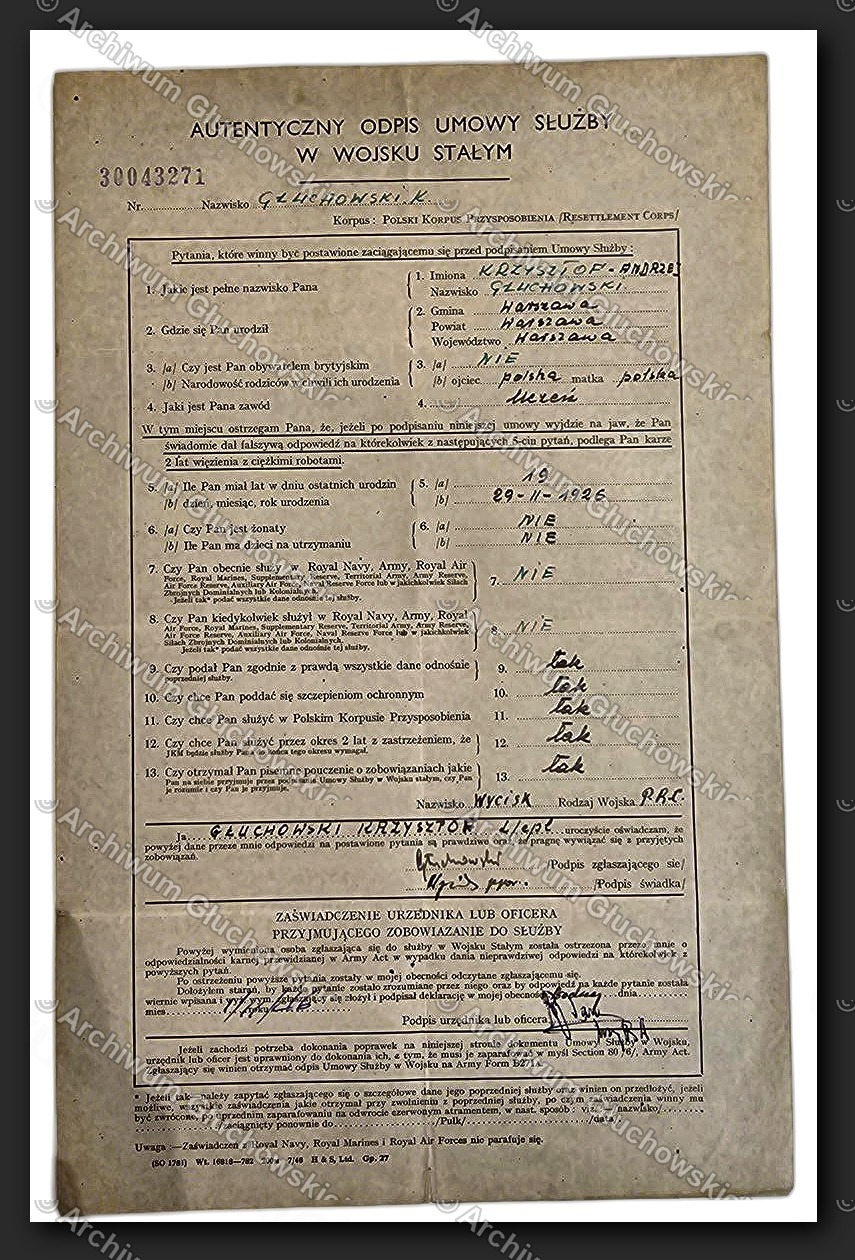 AUTENTYCZNY ODPIS UMOWY SŁUŻBY
W WOJSKU STAŁYM
30043271
Nr. Nazwisko GŁUCHOWSKI. K.
Korpus : POLSKI KORPUS PRZYSPOSOBIENIA /RESETTLEMENT CORPS/
Pytania, które winny być postawione zaciągającemu się przed podpisaniem Umowy Służby :
1. Jakie jest pełne nazwisko Pana
1. Imiona KRZYSZTOF-ANDRZEJ
Nazwisko GŁUCHOWSKI
2. Gdzie się Pan urodził
2. Gmina Warszawa
Powiat Warszawa
Województwo Warszawa
3. /a/ Czy jest Pan obywatelem brytyjskim
3. /a/ NIE
/b/ Narodowość rodziców w chwili ich urodzenia
/b/ ojciec polska matka polska
4. Jaki jest Pana zawód
4. Uczeń
W tym miejscu ostrzegam Pana, że, jeżeli po podpisaniu niniejszej umowy wyjdzie na jaw, że Pan
świadomie dał fałszywą odpowiedź na którekolwiek z następujących 5-ciu pytań, podlega Pan karze
2 lat więzienia z ciężkimi robotami.
5. /a/ Ile Pan miał lat w dniu ostatnich urodzin
5. /a/ 19
/b/ dzień, miesiąc, rok urodzenia
/b/ 29-II-1926
6. /a/ Czy Pan jest żonaty
6. /a/ NIE
/b/ Ile Pan ma dzieci na utrzymaniu
/b/ NIE
7. Czy Pan obecnie służy w Royal Navy, Army, Royal Air
Force, Royal Marines, Supplementary Reserve, Territorial Army, Army Reserve,
Air Force Reserve, Auxiliary Air Force, Naval Reserve Force lub w jakichkolwiek Siłach
Zbrojnych Dominialnych lub Kolonialnych.
Jeżeli tak* podać wszystkie dane odnośnie tej służby.
7. NIE
8. Czy Pan kiedykolwiek służył w Royal Navy, Army, Royal
Air Force, Royal Marines, Supplementary Reserve, Territorial Army, Army Reserve,
Air Force Reserve, Auxiliary Air Force, Naval Reserve Force lub w jakichkolwiek
Siłach Zbrojnych Dominialnych lub Kolonialnych.
Jeżeli tak* podać wszystkie dane odnośnie tej służby.
8. NIE
9. Czy podał Pan zgodnie z prawdą wszystkie dane odnośnie
poprzedniej służby.
9. tak
10. Czy chce Pan poddać się szczepieniom ochronnym
10. tak
11. Czy chce Pan służyć w Polskim Korpusie Przysposobienia
11. tak
12. Czy chce Pan służyć przez okres 2 lat z zastrzeżeniem, że
JKM będzie służby Pana do końca tego okresu wymagał.
12. tak
13. Czy otrzymał Pan pisemne pouczenie o zobowiązaniach jakie
Pan na siebie przyjmuje przez podpisanie Umowy Służby w Wojsku stałym, czy Pan
je rozumie i czy Pan je przyjmuje.
13. tak
Nazwisko WYCISK Rodzaj Wojska P.R.C.
Ja GŁUCHOWSKI KRZYSZTOF uroczyście oświadczam, że
powyżej dane przeze mnie odpowiedzi na postawione pytania są prawdziwe oraz że pragnę wywiązać się z przyjętych
zobowiązań.
Głuchowski /Podpis zgłaszającego się/
/Podpis świadka/
ZAŚWIADCZENIE URZEDNIKA LUB OFICERA
PRZYJMUJĄCEGO ZOBOWIAZANIE DO SŁUŻBY
Powyżej wymieniona osoba zgłaszająca się do służby w Wojsku Stałym została ostrzeżona przezo mnie o
odpowiedzialności karnej przewidzianej w Army Act w wypadku dania nieprawdziwej odpowiedzi na którekolwiek z
powyższych pytań.
Po ostrzeżeniu powyższe pytania zostały w mojej obecności odczytane zgłaszającemu się.
Dołożyłem starań, by każde pytanie zostało zrozumiane przez niego oraz by odpowiedź na każde pytanie została
wiernie wpisana i zgłaszający się złożył i podpisał deklarację w mojej obecności dnia
mies. roku
Podpis urzędnika lub oficera
Jeżeli zachodzi potrzeba dokonania poprawek na niniejszej stronie dokumentu Umowy Służby w Wojsku,
urzędnik lub oficer jest uprawniony do dokonania ich, z tym, że musi je zaparafować w myśl Section 80 /6/, Army Act.
Zgłaszający się winien otrzymać odpis Umowy Służby w Wojsku na Army Form B271a.
* Jeżeli tak—należy zapytać zgłaszającego się o szczegółowe dane jego poprzedniej służby oraz winien on przedłożyć, jeżeli
możliwe, wszystkie zaświadczenia jakie otrzymał przy zwolnieniu z poprzedniej służby, po czym zaświadczenia winny mu
być zwrócone, po uprzednim zaparafowaniu na odwrocie czerwonym atramentem, w nast. sposób : viz. /nazwisko/
zaciągnięty ponownie do /Pułk/ /data/
Uwaga :—Zaświadczeń z Royal Navy, Royal Marines i Royal Air Forces nie parafuje się.
(SO 1781) Wt. 16818—782 200m 7/46 H & S, Ltd. Gp. 27
© Archiwum Głuchowskich